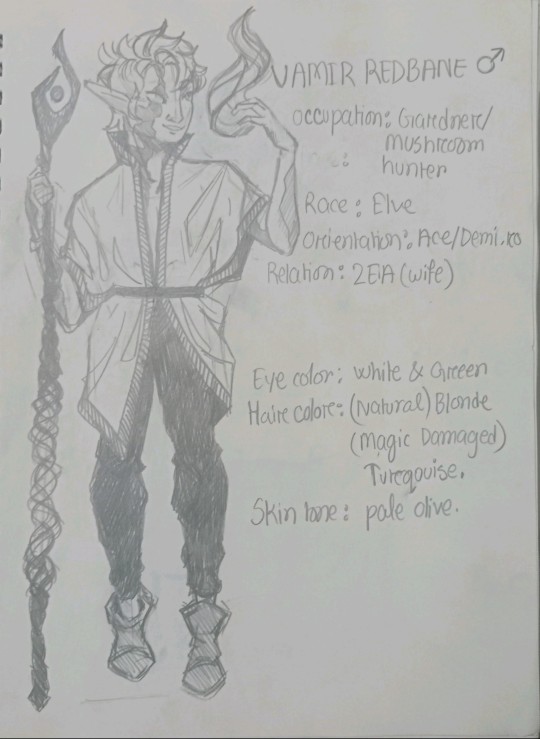 VAMIR REDBANE ♂
occupation: Giardnerr/
mushrroom
: hunterr
Race: Elve
Orientation: Ace/Demi.ro
Relation: 2EIA (wife)
Eye color: White & Grreen
Haire colore: (Natural) Blonde
(Magic Damaged)
Turrqouise.
Skin tone: pale olive.